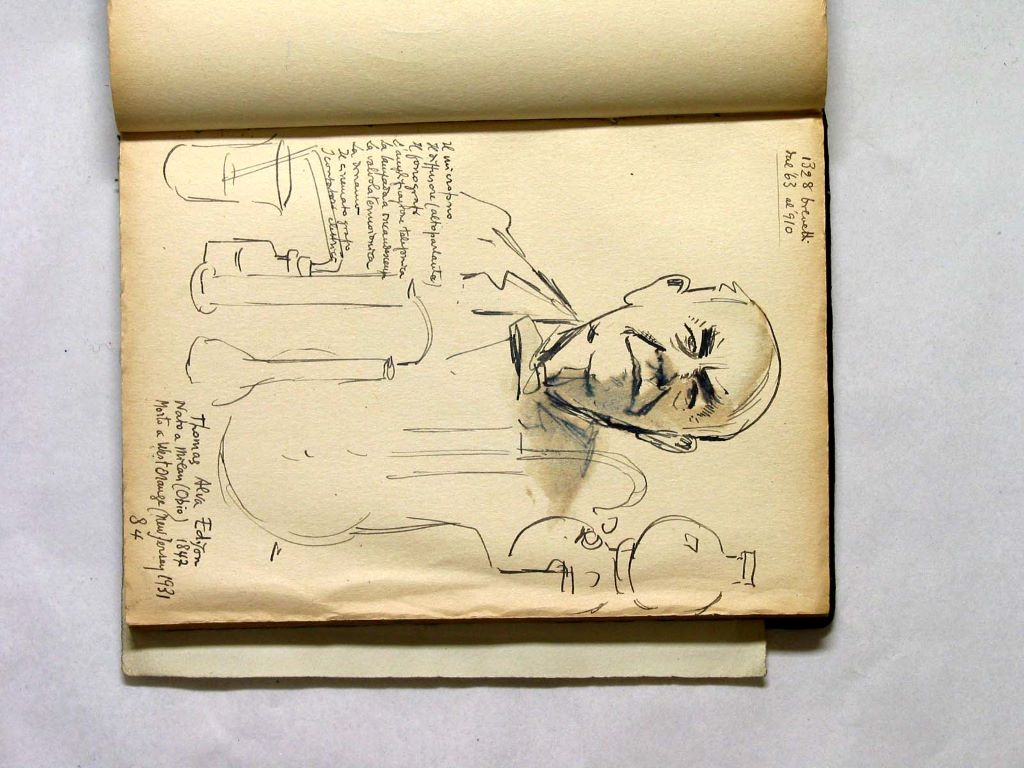 1328 brevetti
dal '63 al 910
Il microfono
Il diffusore (altoparlante)
Il fonografo
L'amplificazione telefonica
La lampada a incandescenza
La valvola termoionica
La dinamo
Il cinematografo
I contatori elettrici
Thomas Alva Edison
Nato a Milan (Ohio) 1847
Morto a West Orange (New Jersey 1931
84